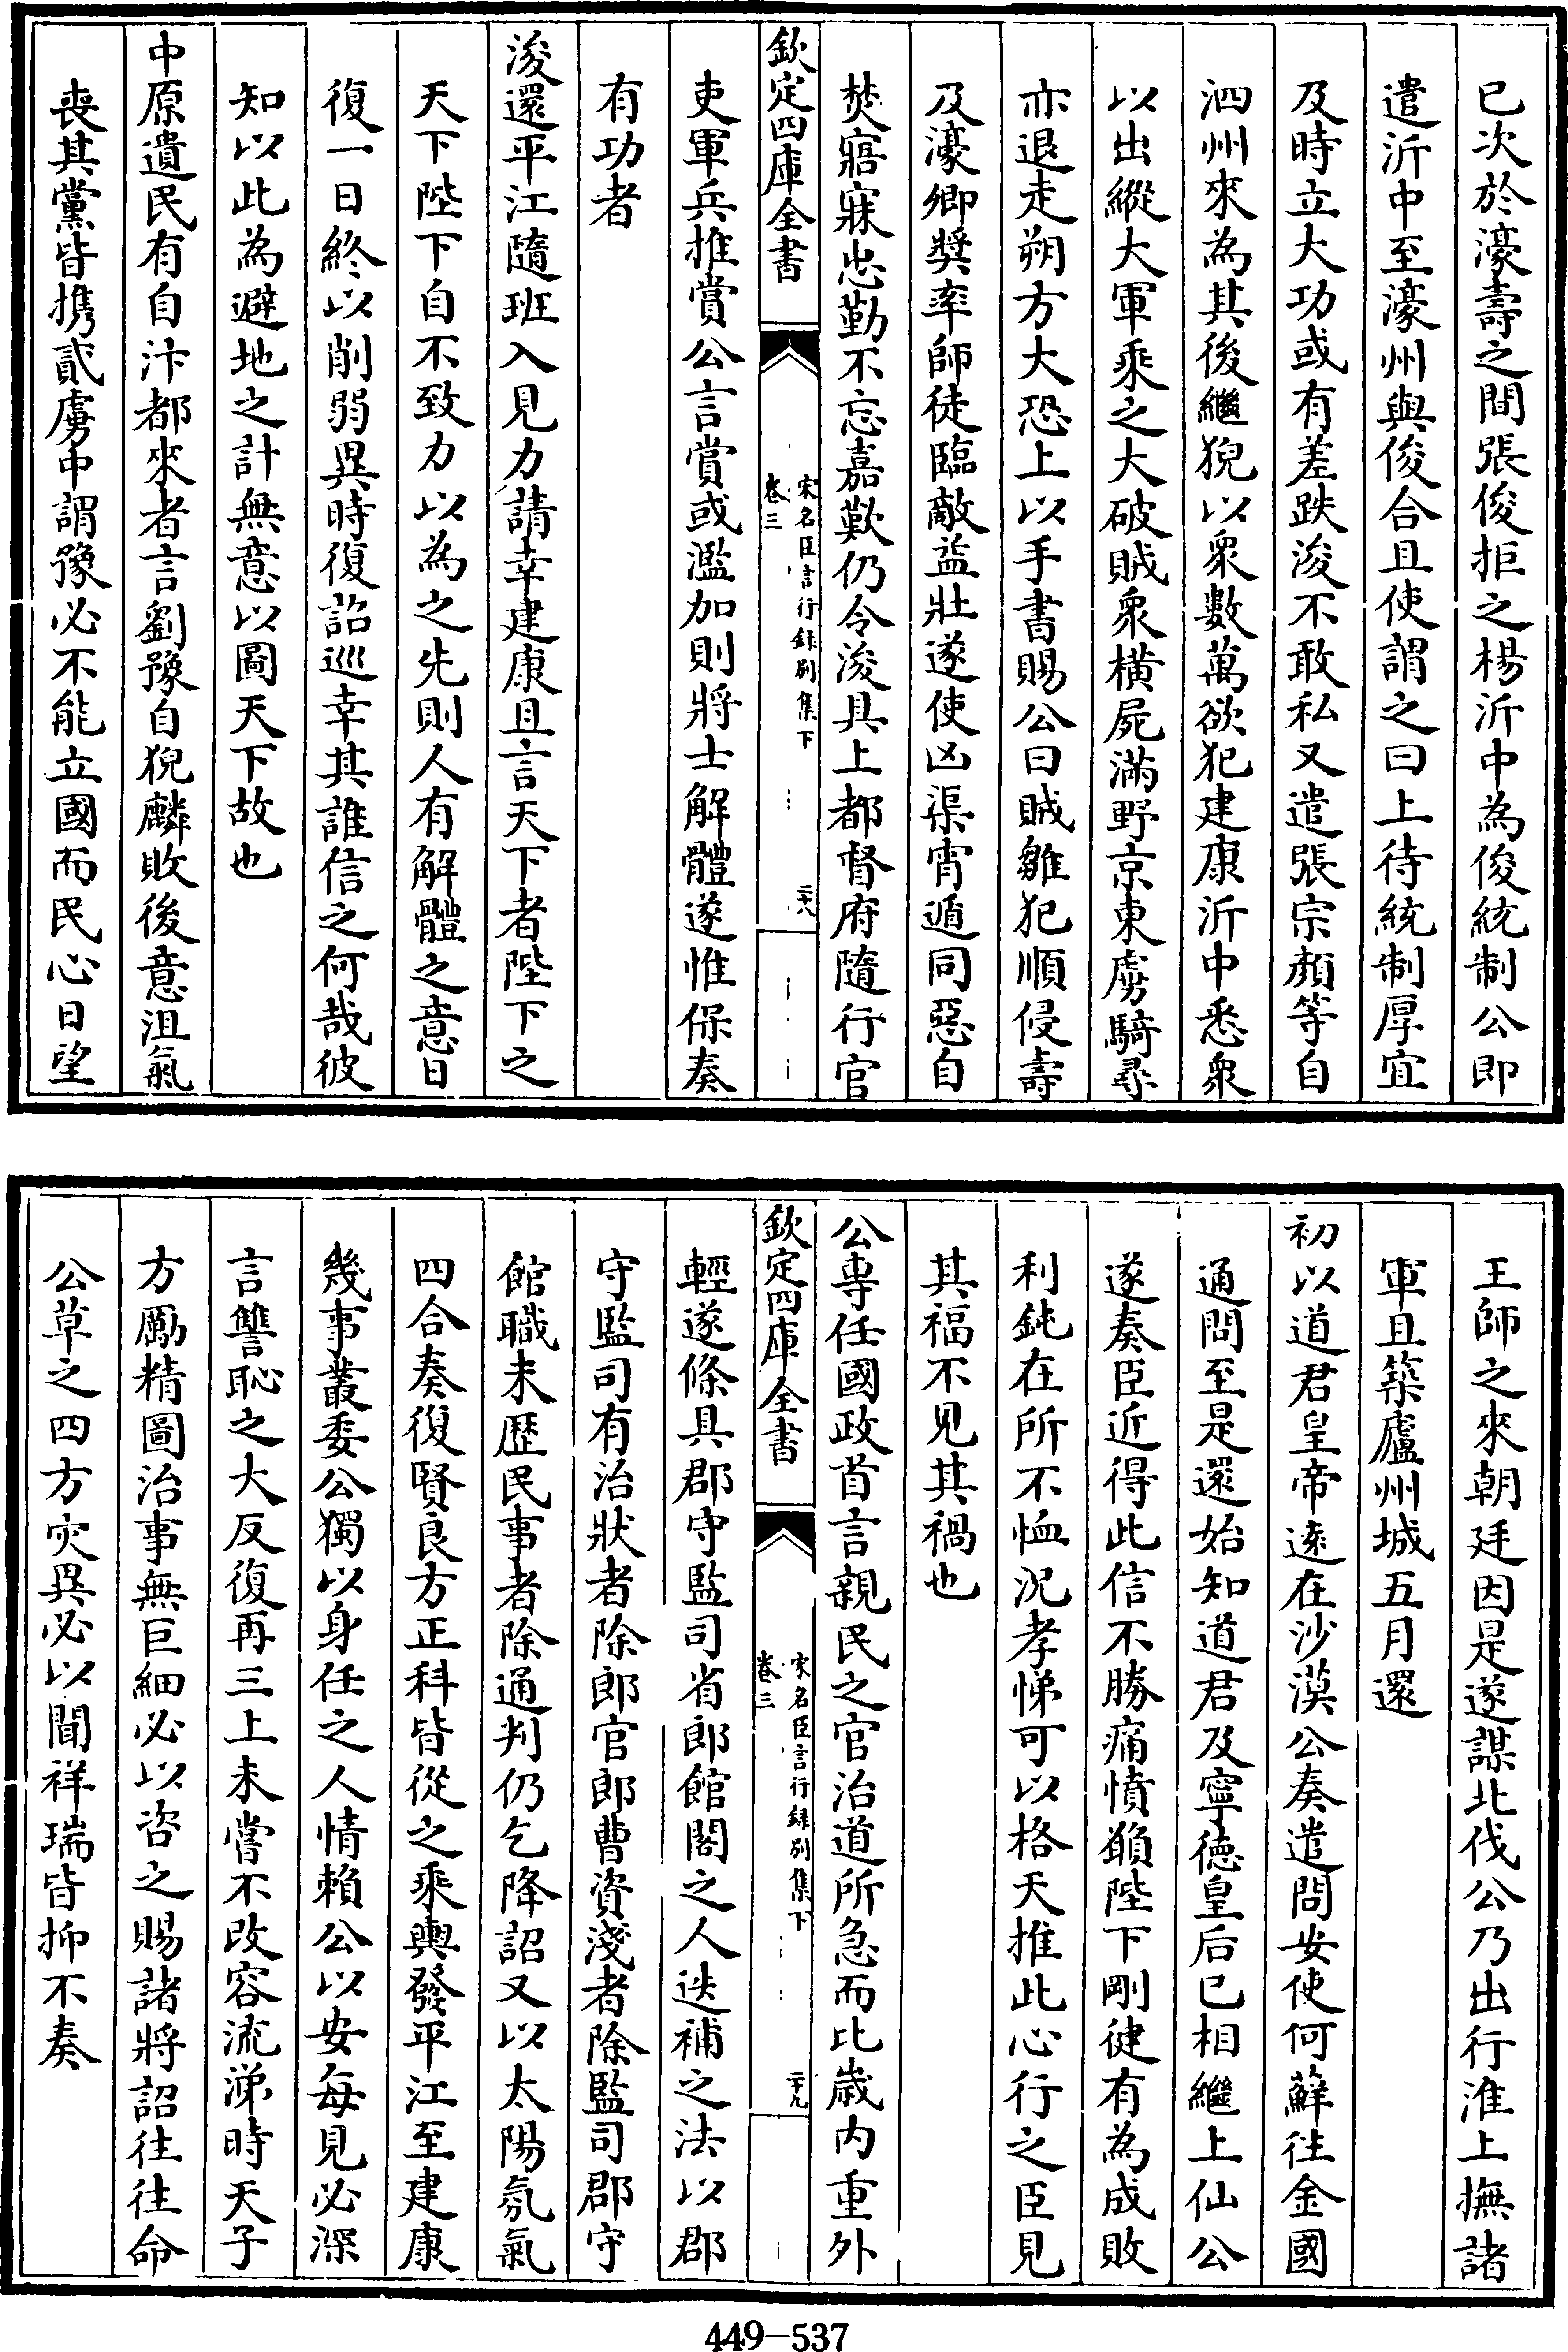 已次於濠壽之間張俊拒之楊沂中為俊統制公即
遣沂中至濠州與俊合且使謂之曰上待統制厚宜
及時立大功或有差跌浚不敢私又遣張宗顏等自
泗州來為其後繼猊以衆數萬欲犯建康沂中悉衆
以出縱大軍乘之大破賊衆橫屍滿野京東虜騎尋
亦退走朔方大恐上以手書賜公曰賊雛犯順侵壽
及濠卿奬率師徒臨敵益壯遂使凶渠宵遁同惡自
焚寤寐忠勤不忘嘉歎仍令浚具上都督府隨行官
欽定四庫全書
宋名臣言行録别集下
卷三
二十八
吏軍兵推賞公言賞或濫加則將士解體遂惟保奏
有功者
浚還平江隨班入見力請幸建康且言天下者陛下之
天下陛下自不致力以為之先則人有解體之意日
復一日終以削弱異時復詔巡幸其誰信之何哉彼
知以此為避地之計無意以圖天下故也
中原遺民有自汴都來者言劉豫自猊麟敗後意沮氣
喪其黨皆攜貳虜中謂豫必不能立國而民心日望
王師之來朝廷因是遂謀北伐公乃出行淮上撫諸
軍且築廬州城五月還
初以道君皇帝遠在沙漠公奏遣問安使何蘚往金國
通問至是還始知道君及寧德皇后已相繼上仙公
遂奏臣近得此信不勝痛憤顧陛下剛健有為成敗
利鈍在所不恤況孝悌可以格天推此心行之臣見
其福不见其禍也
公專任國政首言親民之官治道所急而比歲内重外
欽定四庫全書
宋名臣言行録别集下
卷三
二十九
輕遂條具郡守監司省郎館閣之人迭補之法以郡
守監司有治狀者除郎官郎曹資淺者除監司郡守
館職未歷民事者除通判仍乞降詔又以太陽氛氣
四合奏復賢良方正科皆從之乘輿發平江至建康
幾事叢委公獨以身任之人情賴公以安每見必深
言讐恥之大反復再三上未嘗不改容流涕時天子
方勵精圖治事無巨細必以咨之賜諸將詔往往命
公草之四方灾異必以聞祥瑞皆抑不奏
449-537